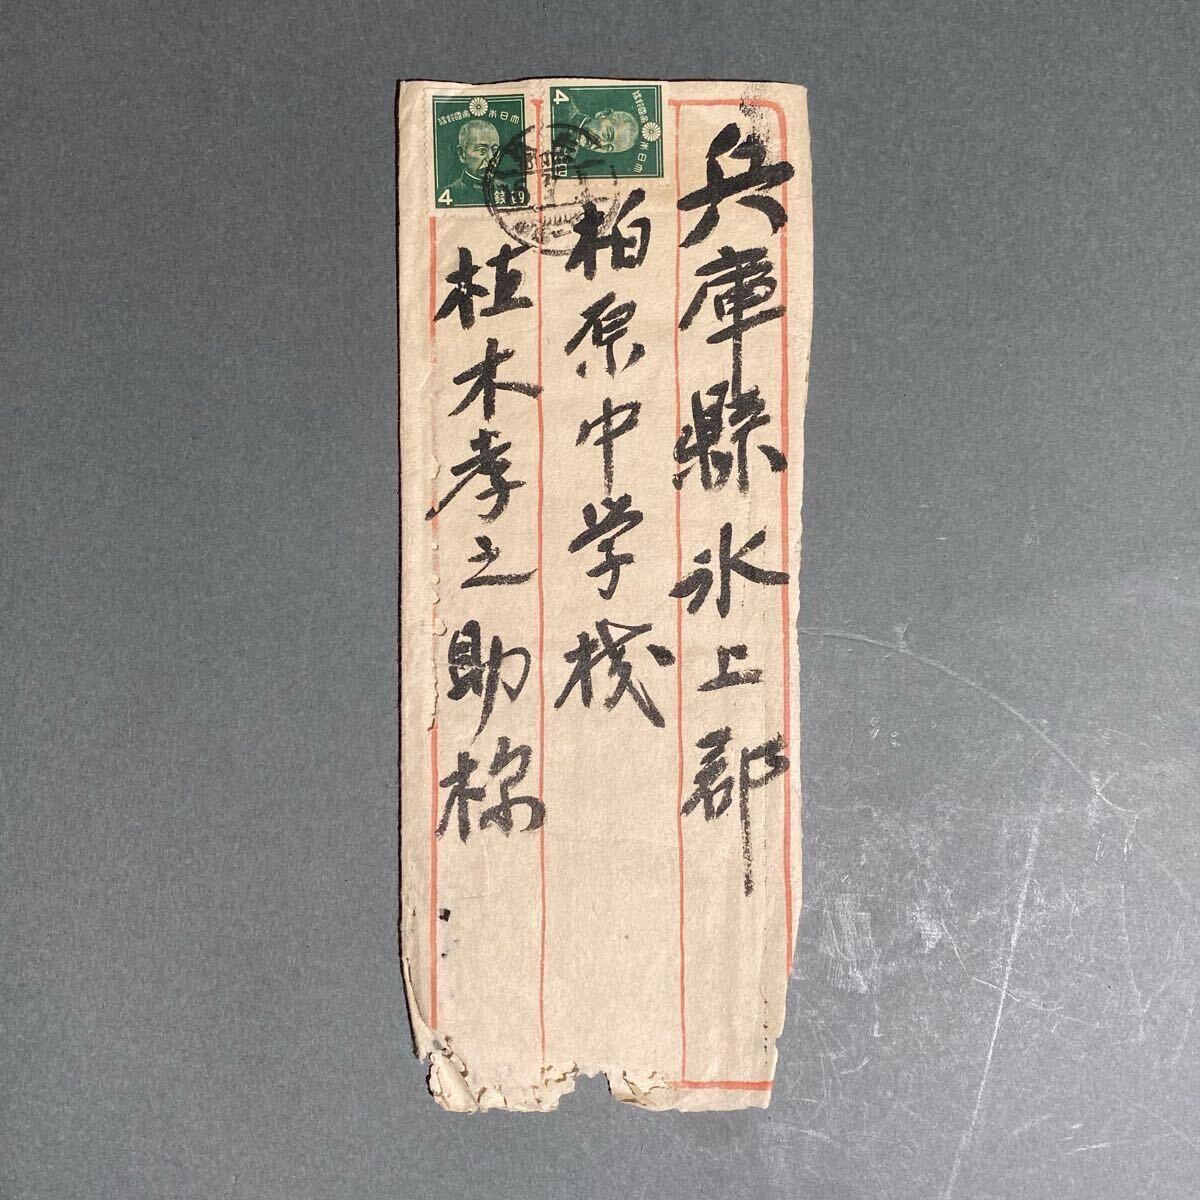 兵庫縣氷上郡
柏原中学校
植木孝之助様
大日本帝國郵便
四錢
4
大日本帝國郵便
四錢
4